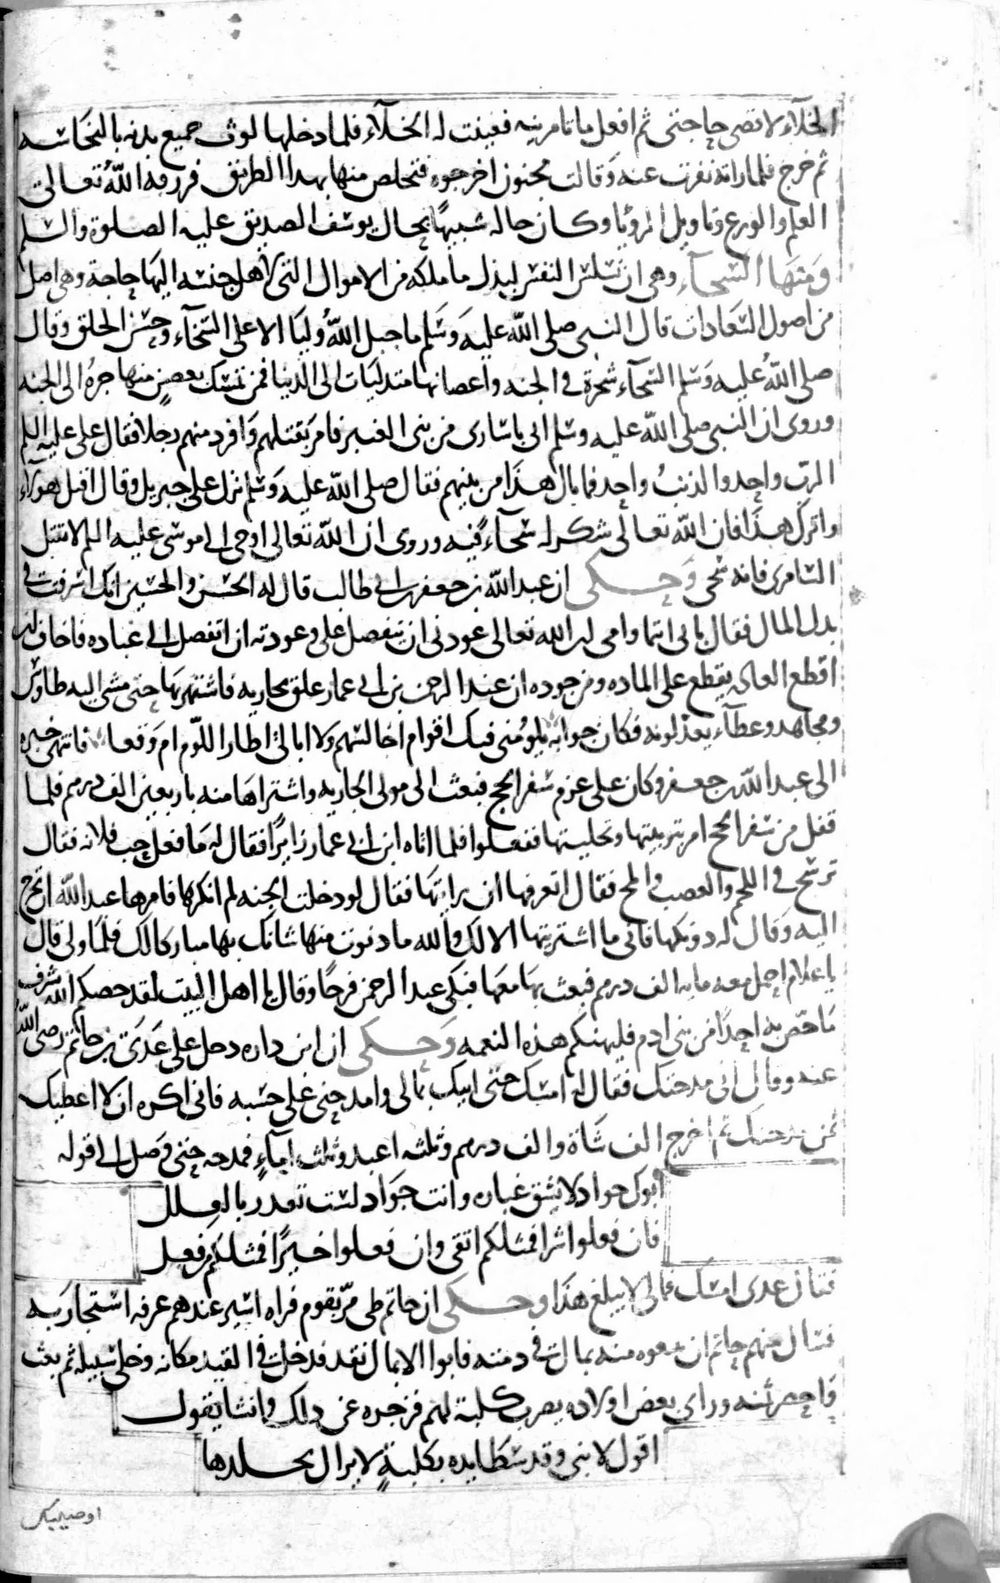 الخلاء لاقضي حاجتي ثم افعل ما تامرينه فعينت له الخلاء فلما دخلها لوث جميع بدنه بالنجاسه
ثم خرج فلما راته نفرت عنه وقالت مجنون اخرجوه فتخلص منها بهذا الطريق فرزقه الله تعالى
العلم والورع وتاويل الرويا وكان حاله شبيها بحال يوسف الصديق عليه الصلوة والسلم
ومنها السخاء وهي ان تسلس النفس لبذل ما ملكه من الاموال التي لاهل جنسه اليها حاجة وهي اصل
من اصول السعادات قال النبي صلى الله عليه وسلم ما جبل الله وليا الا على السخاء وحسن الخلق وقال
صلى الله عليه وسلم السخاء شجرة في الجنه واغصانها متدليات الى الدنيا فمن تمسك بغصن منها جره الى الجنه
وروى ان النبي صلى الله عليه وسلم اتى باسارى من بني العنبر فامر بقتلهم وافرد منهم رجلا فقال علي عليه السلم
الرب واحد والذنب واحد فما بال هذا من بينهم فقال صلى الله عليه وسلم نزل علي جبريل وقال اقتل هولاء
واترك هذا فان الله تعالى شكر له سخاء فيه وروى ان الله تعالى اوحى الى موسى عليه السلم لا تقتل
السامري فانه سخي وحكى ان عبدالله بن جعفر بن ابي طالب قال له الحسن والحسين انك اسرفت في
بذل المال فقال بابي انتما وامي ان الله تعالى عودني ان يتفضل علي وعودته ان اتفضل الى عباده فاخاف ان
اقطع العاده يقطع علي الماده ومن جوده ان عبد الرحمن بن ابي عمار علق بجاريه فاشتهر بها حتى مشى اليه طاوس
ومجاهد وعطاء يعذلونه فكان جوابه يلومني فيك اقوام اجالسهم ولا ابالي اطار اللوم ام وقعا فانتهى خبره
الى عبدالله بن جعفر وكان على عزم سفر الحج فبعث الى مولى الجاريه واشتراها منه باربعين الف درهم فلما
قفل من سفر الحج امر بتزيينها وتحليتها ففعلوا فلما اتاه ابن ابي عمار زايرا فقال له ما فعل حب فلانه فقال
ترسخ في اللحم والعصب والمخ فقال اتعرفها ان رايتها فقال لو دخلت الجنه لم انكرها فامرها عبدالله ان تخرج
اليه وقال له دونكها فاني ما اشتريتها الا لك والله ما دنوت منها شانك بها مباركا لك فلما ولى قال
يا غلام احمل معه مايه الف درهم فبعث بها معها فبكى عبد الرحمن فرحا وقال يا اهل البيت لقد خصكم الله بشرف
ما خص به احدا من بني ادم فليهنكم هذه النعمه وحكى ان ابن داره دخل على عدي بن حاتم رضي الله
عنه وقال اني مدحتك فقال له امسك حتى انيك بمالي وامدحني على حسبه فاني اكره ان لا اعطيك
ثمن مدحتك ثم اخرج الف شاة والف درهم وثلثه اعبد وثلث اماء فمدحه حتى وصل الى قوله
ابوك جواد لا يشق غباره وانت جواد لست تعذر بالعلل
فان فعلوا شرا فمثلكم اتقى وان فعلوا خيرا فمثلكم فعل
فقال عدي امسك فمالي لا يبلغ هذا وحكى ان حاتم طي مر بقوم فراه اسير عندهم عرفه استجار به
فقال منهم حاتم ان يبيعوه منه بمال في ذمته فابوا الا بمال نقد فدخل في القيد مكانه وخلى سبيله ثم بعث
واحضر ثمنه وراى بعض اولاده يضرب كلبة لهم فزجره عن ذلك وانشا يقول
اقول لابني وقد سطا يده بكلبة لا يزال يجلدها
اوصيك